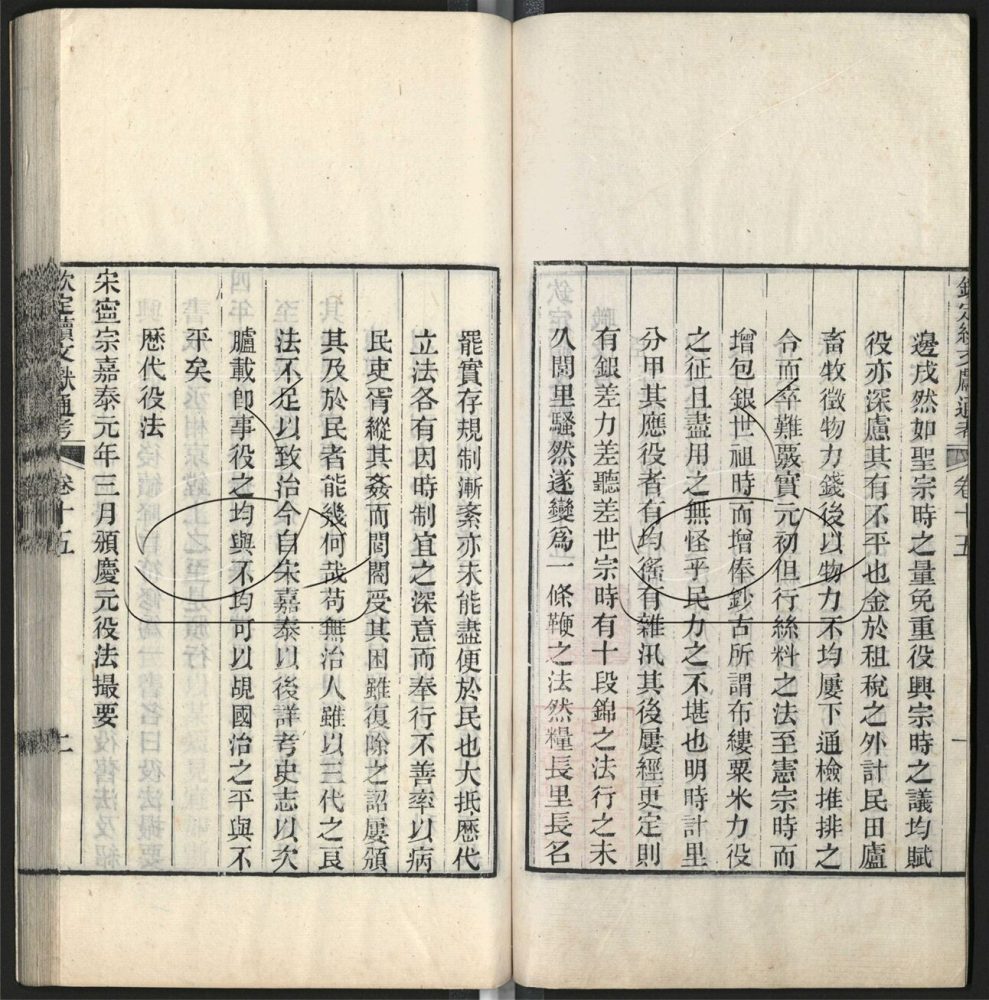 欽定續文獻通考 卷十五 一
邊戍然如聖宗時之量免重役興宗時之議均賦
役亦深慮其有不平也金於租稅之外計民田廬
畜牧徵物力錢後以物力不均屢下通檢推排之
令而卒難覈實元初但行絲料之法至憲宗時而
增包銀世祖時而增俸鈔古所謂布縷粟米力役
之征且盡用之無怪乎民力之不堪也明時計里
分甲其應役者有均徭有雜汛其後屢經更定則
有銀差力差聽差世宗時有十段錦之法行之未
久閭里騷然遂變爲一條鞭之法然糧長里長名
罷實存規制漸紊亦未能盡便於民也大抵歷代
立法各有因時制宜之深意而奉行不善率以病
民吏胥縱其姦而閭閻受其困雖復除之詔屢頒
其及於民者能幾何哉苟無治人雖以三代之良
法不足以致治今自宋嘉泰以後詳考史志以次
臚載卽事役之均與不均可以覘國治之平與不
平矣
歷代役法
宋寧宗嘉泰元年三月頒慶元役法撮要
欽定續文獻通考 卷十五 二